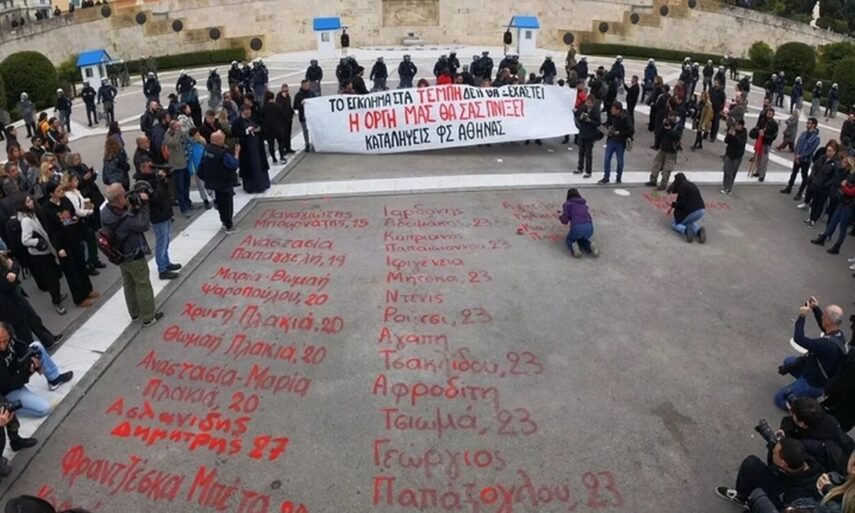 ΤΟ ΕΓΚΛΗΜΑ ΣΤΑ ΤΕΜΠΗ ΔΕΝ ΞΕΧΝΙΕΤΑΙ
Η ΟΡΓΗ ΜΑΣ ΘΑ ΣΑΣ ΠΝΙΞΕΙ
ΚΑΤΑΛΗΨΕΙΣ ΦΣ ΑΘΗΝΑΣ
Παναγιώτης
Μπουρνάζης, 15
Αναστασία
Παπαγγελή, 19
Μαρία-Θωμαή
Ψαροπούλου, 20
Χρυσή Πλακιά, 20
Θωμαή Πλακιά, 20
Αναστασία-Μαρία
Πλακιά, 20
Ασλανίδης
Δημήτρης 27
Φραντζέσκα Μπέζα
Ιορδάνης
Αδαμάκης, 23
Κυπριανός
Παπαϊωάννου 23
Ιφιγένεια
Μήτσκα, 23
Ντένις
Ρούτσι, 23
Αγάπη
Τσακλίδου, 23
Αφροδίτη
Τσιωμά, 23
Γεώργιος
Παπάζογλου, 23